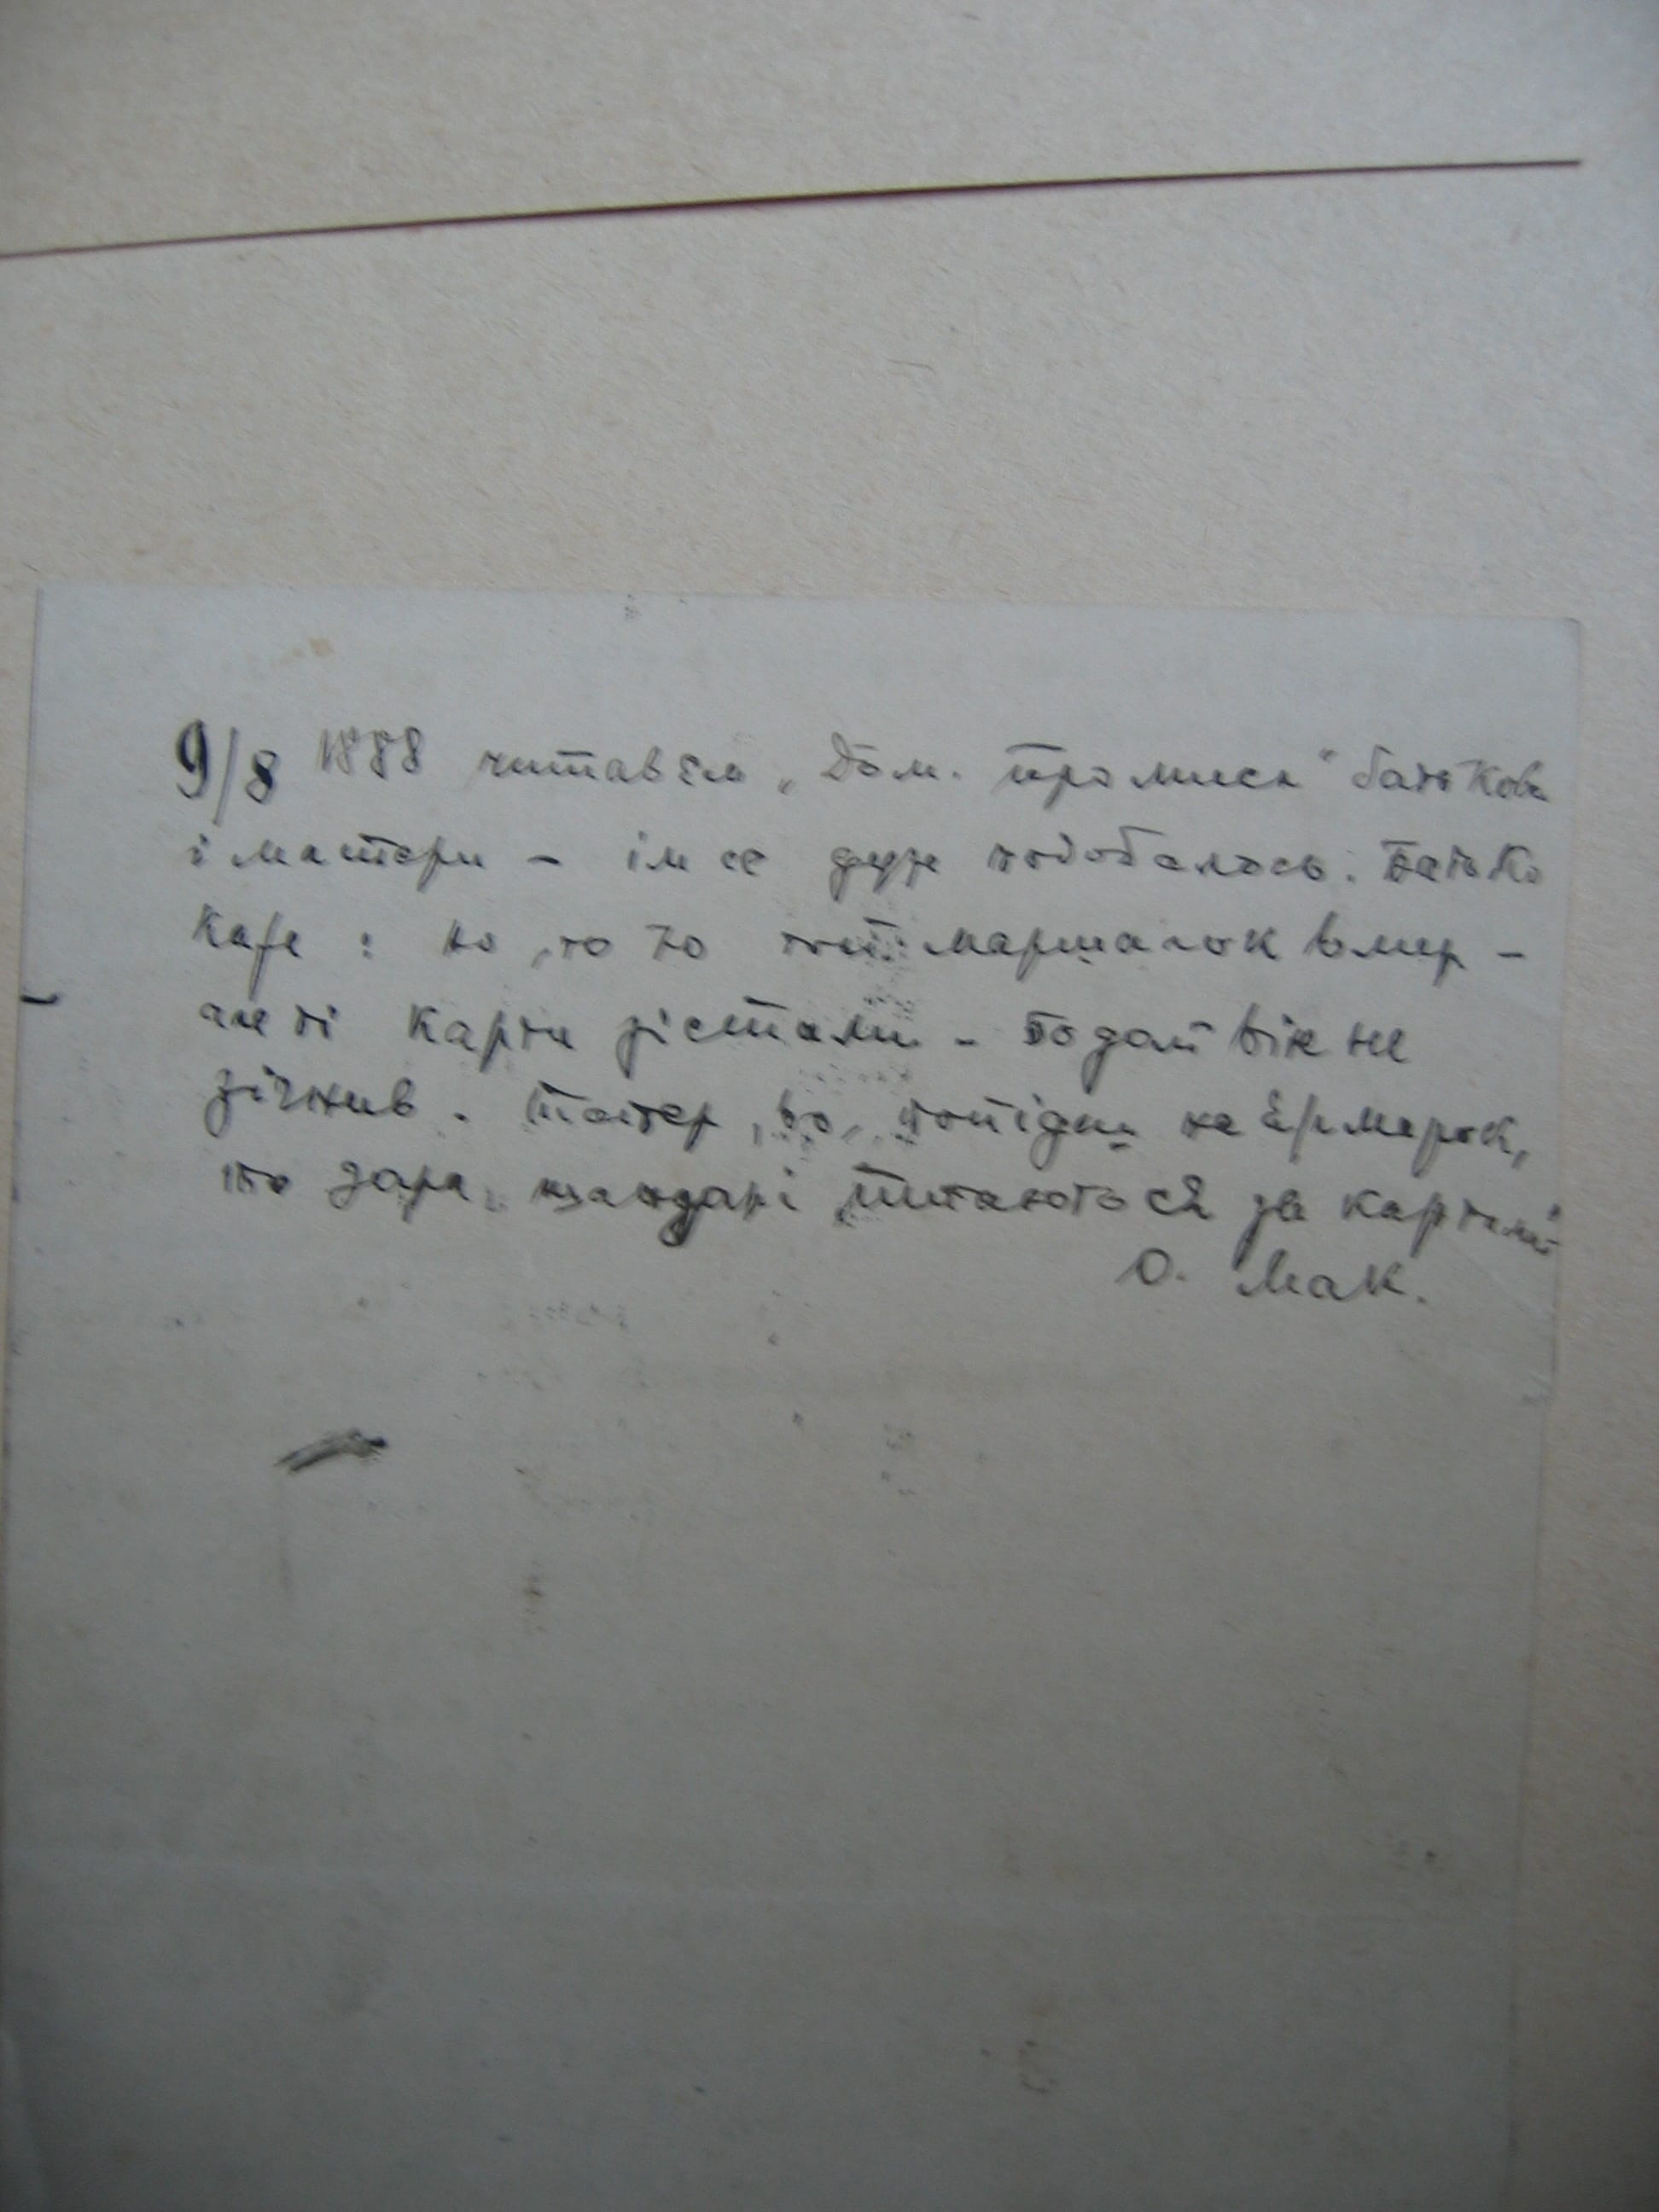 9/8 1888 читавем „Дом. промисл" батькови
і матери – їм се дуже подобалось. Батько
каже: но, то то той маршалок вмер –
але ті карти зістали – Бодай вік не
зіжив. Тайтер, во, попідиш на ярмарок,
то зара жандарі питаються за картами
О. Мак.